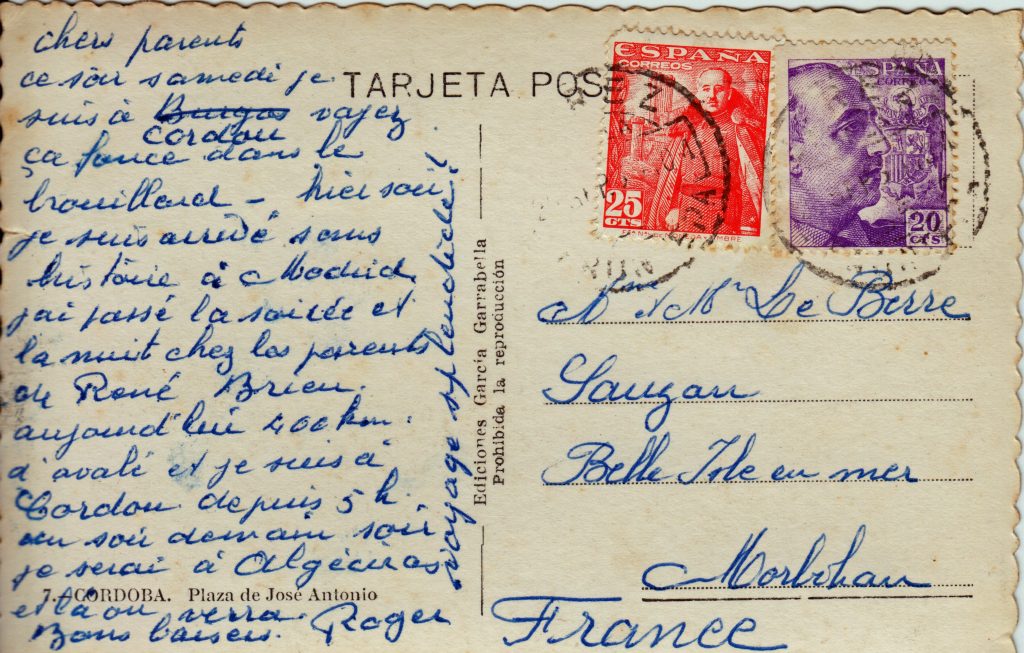 chers parents
ce soir samedi je
suis à Burgos voyez
Cordou
ça fonce dans le
brouillard - hier soir
je suis arrivé sans
histoire à Madrid
j'ai passé la soirée et
la nuit chez les parents
de René Brien.
aujourd'hui 400 km.
d'avalé et je suis à
Cordou depuis 5 h.
du soir demain soir
je serai à Algéciras
et là on verra
Bons baisers. Roger
voyage splendide!
7.-CORDOBA. Plaza de José Antonio
TARJETA POS
Ediciones García Garrabella
Prohibida la reproducción
ESPAÑA
CORREOS
25
CTS
ESPAÑA
CORREOS
20
CTS
Mme et Mr Le Berre
Sauzon
Belle Isle en mer
Morbihan
France